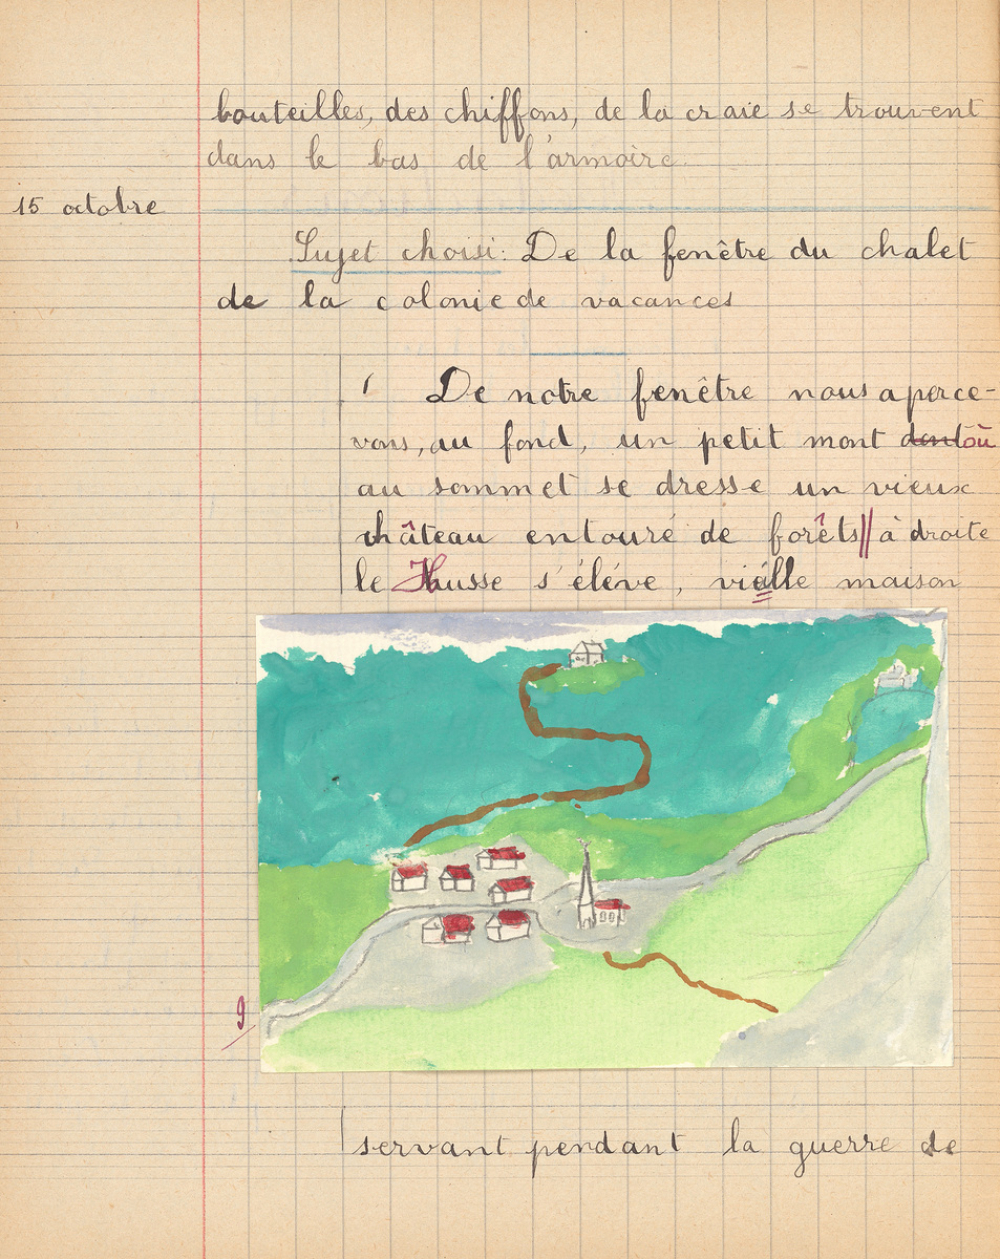 bouteilles, des chiffons, de la craie se trouvent
dans le bas de l'armoire.
15 octobre
Sujet choisi: De la fenêtre du chalet
de la colonie de vacances
De notre fenêtre nous aperce-
vons, au fond, un petit mont dont où
au sommet se dresse un vieux
château entouré de forêts || à droite
le Husse s'éléve, vieille maison
9
servant pendant la guerre de